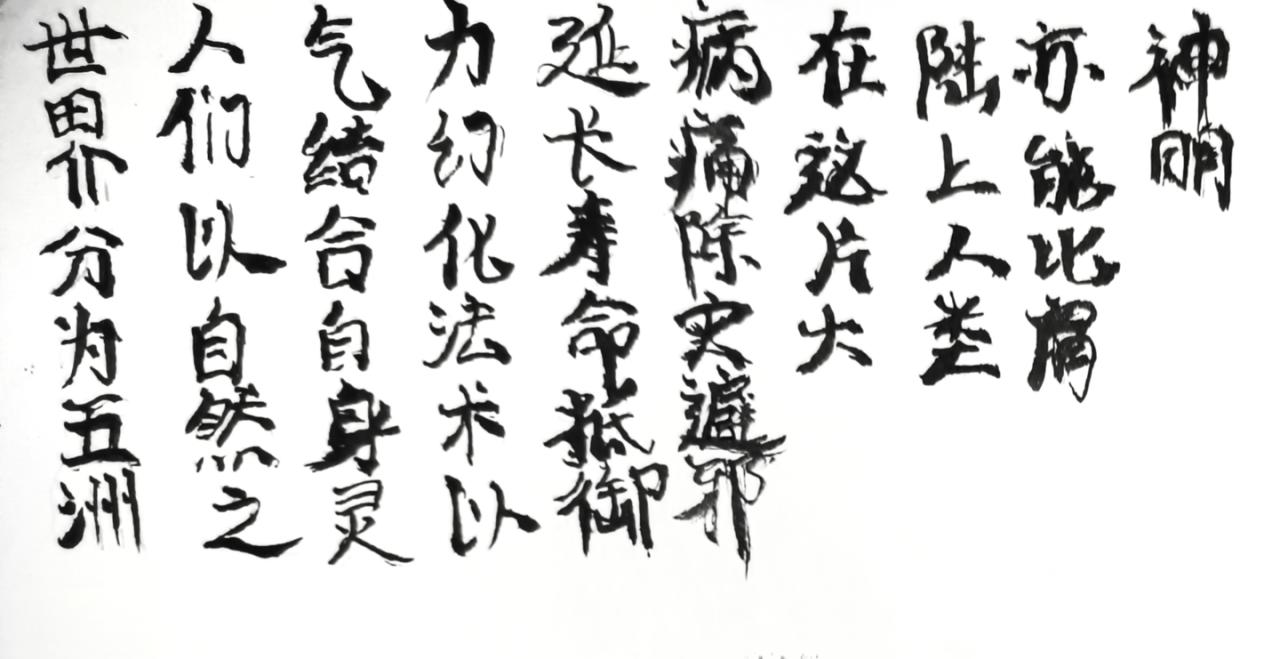 世界分为五洲
人们以自然之
气结合自身灵
力幻化法术以
延长寿命抵御
病痛除灾避邪
在这片大
陆上人类
亦能比肩
神明